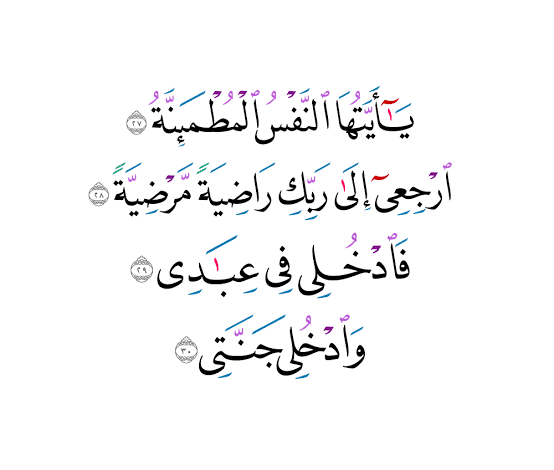 يَـٰٓأَيَّتُهَا ٱلنَّفْسُ ٱلْمُطْمَئِنَّةُ ٢٧
ٱرْجِعِىٓ إِلَىٰ رَبِّكِ رَاضِيَةً مَّرْضِيَّةً ٢٨
فَٱدْخُلِى فِى عِبَـٰدِى ٢٩
وَٱدْخُلِى جَنَّتِى ٣٠